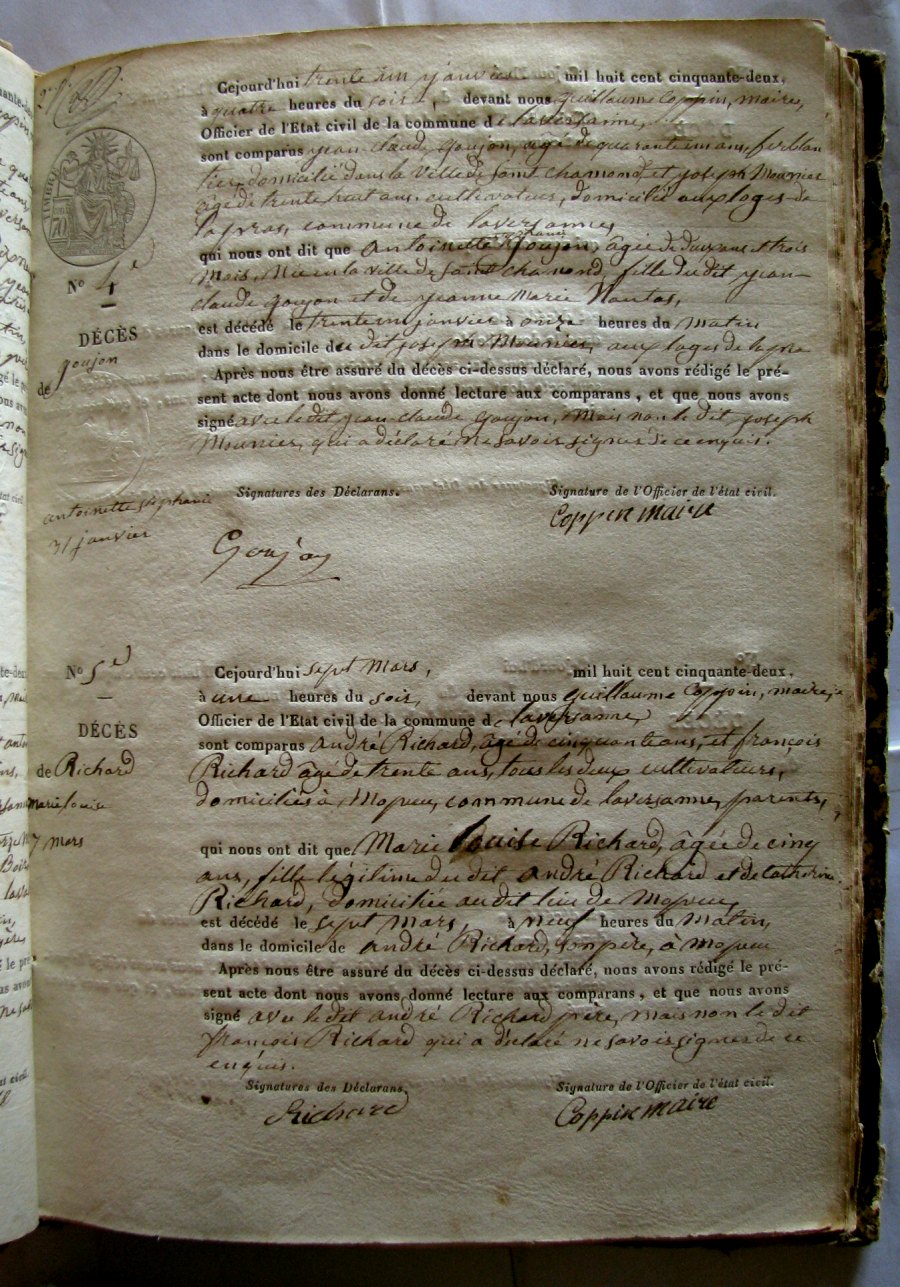 Cejourd'hui trente un janvier mil huit cent cinquante-deux,
à quatre heures du soir, devant nous guillaume Coppin, maire,
Officier de l'Etat civil de la commune de laversanne,
sont comparus jean claude goujon, agé de quarante un ans, ferblan
tier, domicilié dans la ville de saint chamond, et joseph Mounier
agé de trente huit ans, cultivateur, domicilié aux loges de
la pras, commune de laversanne,
qui nous ont dit que antoinette stéphanie goujon, agée de deux ans et trois
mois, Née en la ville de saint chamond, fille du dit jean
claude goujon et de jeanne Marie
est décédé le trente un janvier à onze heures du Matin
dans le domicile du dit joseph Mounier, aux loges de la pra
Après nous être assuré du décès ci-dessus déclaré, nous avons rédigé le pré-
sent acte dont nous avons donné lecture aux comparans, et que nous avons
signé avec le dit jean claude goujon, Mais non le dit joseph
Mounier, qui a déclaré ne savoir signer de ce enquis.
N° 4e
DÉCÈS
de goujon
antoinette stéphanie
31 janvier
Signatures des Déclarans. Signature de l'Officier de l'état civil.
Coppin maire
Goujon
N° 5e
DÉCÈS
de Richard
Marie louise
7 mars
Cejourd'hui sept Mars, mil huit cent cinquante-deux,
à une heures du soir, devant nous guillaume Coppin, maire,
Officier de l'Etat civil de la commune de laversanne,
sont comparus andré Richard, agé de cinquante ans, et françois
Richard agé de trente ans, tous les deux cultivateurs,
domiciliés à commune de laversanne, parents,
qui nous ont dit que Marie louise Richard, agée de cinq
ans, fille légitime du dit andré Richard et de Catherine
Richard, domiciliée au dit lieu de
est décédé le sept Mars, à Neuf heures du Matin,
dans le domicile de andré Richard, son père, à
Après nous être assuré du décès ci-dessus déclaré, nous avons rédigé le pré-
sent acte dont nous avons donné lecture aux comparans, et que nous avons
signé avec le dit andré Richard père, mais non le dit
françois Richard qui a déclaré ne savoir signer de ce
enquis.
Signatures des Déclarans. Signature de l'Officier de l'état civil.
Richard Coppin maire